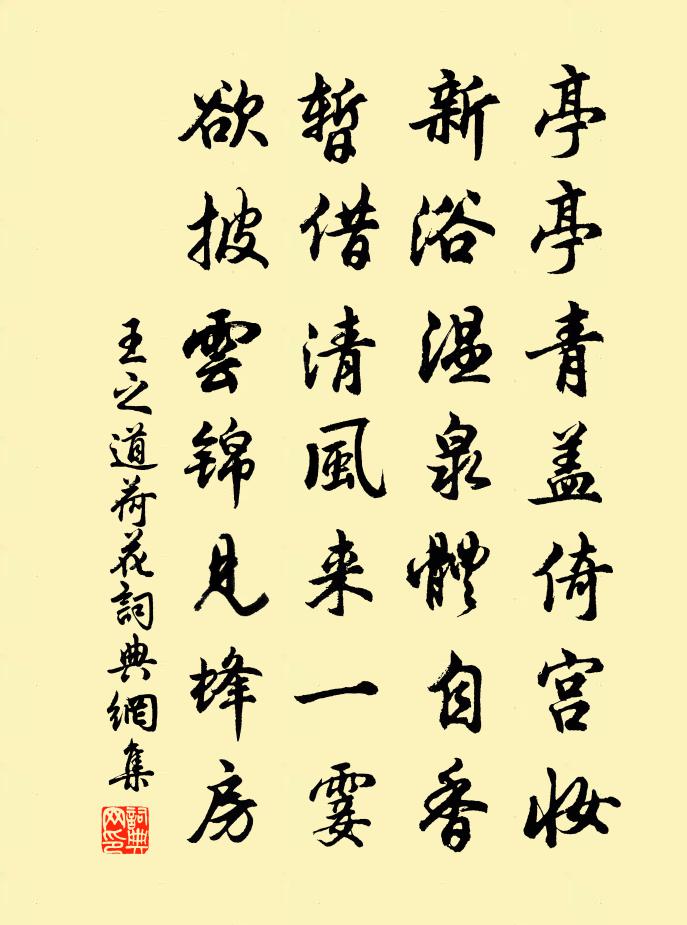 亭亭青盖倚宫妆
新浴温泉體自香
暫借清風来一霎
欲披雲锦見蜂房
王之道荷花詞典網集
詞典网印